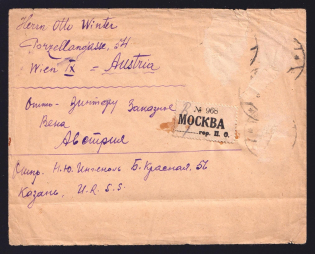 Herrn Otto Winter
Porzellangasse, 54
Wien IX = Austria
Отто-Винтеру Заказное
Вена
Австрия
R
№ 966
МОСКВА
гор. П. О.
Отпр. Н. Ю. Б. Красная, 56
Казань, U.R.S.S.